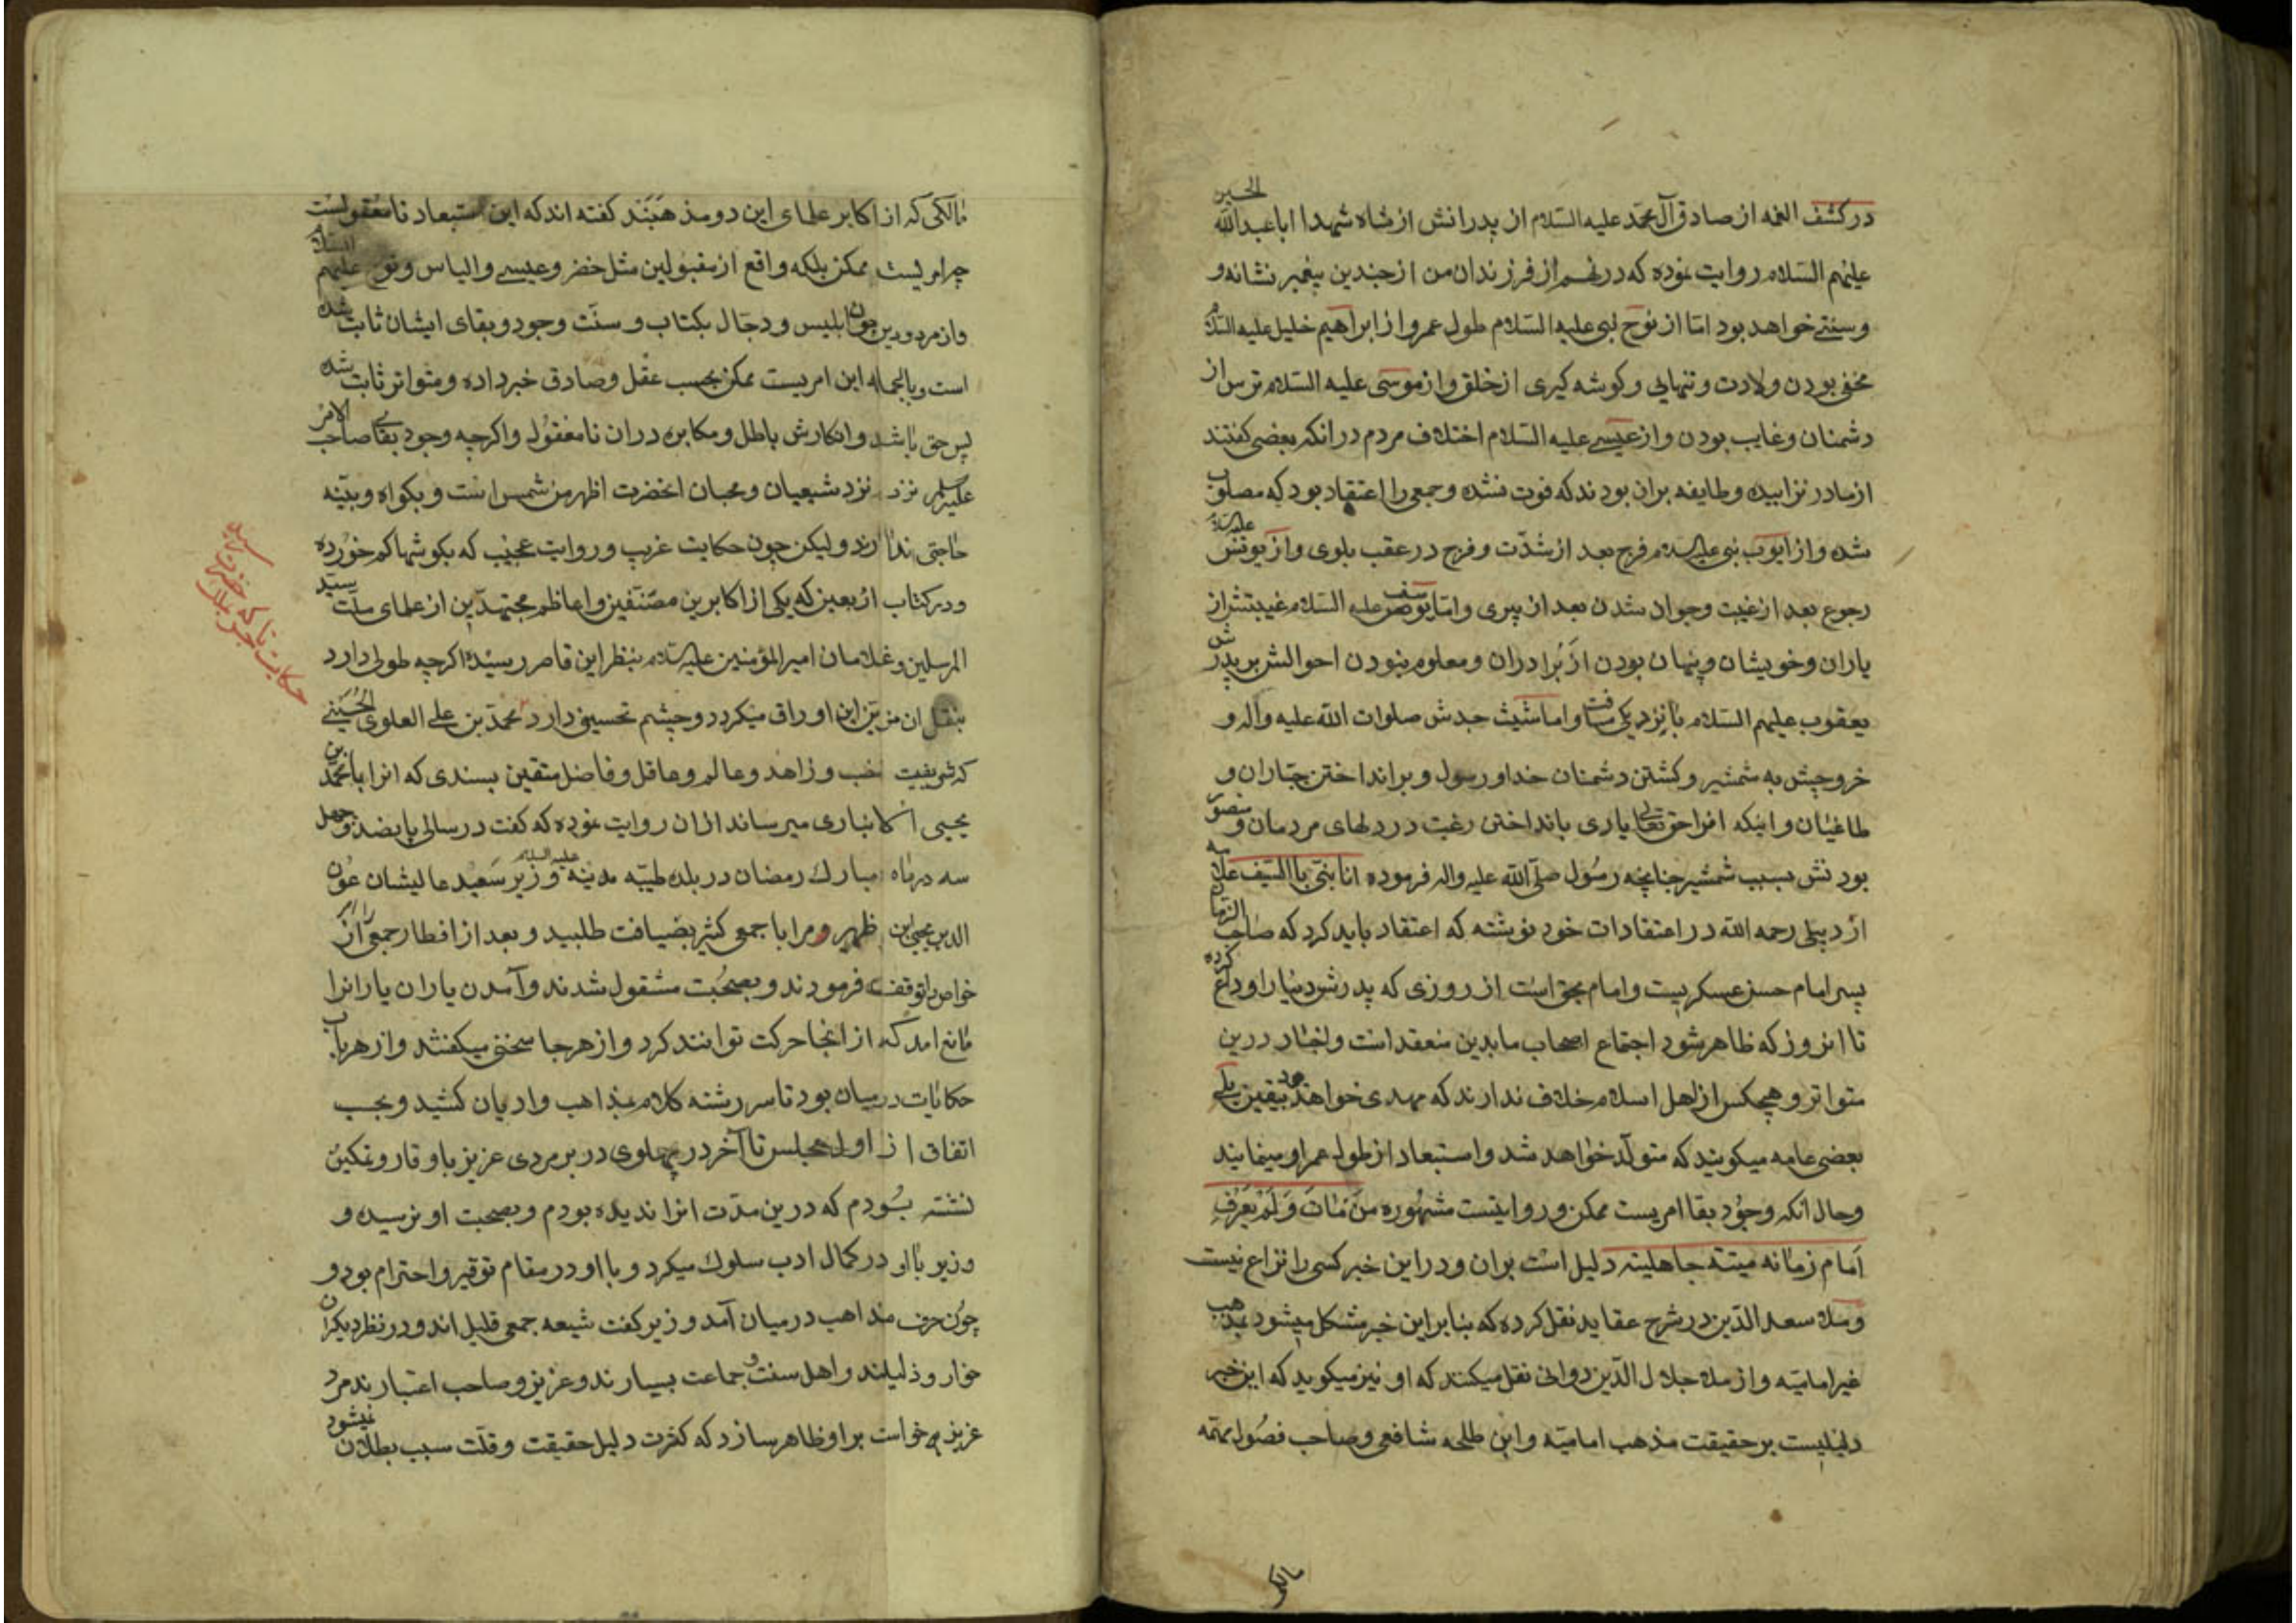 در کشف الغمه از صادق آل محمد علیه السلام از پدرانش از شاه شهدا ابا عبدالله الحسین
علیهم السلام روایت نموده که در نهم از فرزندان من از چندین پیغمبر نشانه و
و سنتی خواهد بود اما از نوح نبی علیه السلام طول عمر و از ابراهیم خلیل علیه السلام
مخفی بودن ولادت و تنهایی و کوشه کیری از خلق و از موسی علیه السلام ترس از
دشمنان و غایب بودن و از عیسی علیه السلام اختلاف مردم در انکه بعضی کفتند
از مادر نزاییده و طایفه بران بودند که فوت نشده و جمعی را اعتقاد بود که مصلوب
شده و از ایوب نبی علیه السلام فرج بعد از شدّت و فرح در عقب بلوی و از یونس علیه السلام
رجوع بعد از غیبت و جوان شدن بعد از پیری و اما یوسف علیه السلام غیبتش از
یاران و خویشان و پنهان بودن از برادران و معلوم نبودن احوالش بر پدرش
یعقوب علیهم السلام با نزدیکی مسافت و اما شیث جدش صلوات الله علیه و آله و
خروجش به شمشیر و کشتن دشمنان خدا و رسول و بر انداختن جبّاران و
طاغیان و اینکه او را حق تعالی یاری بانداختن رغبت در دلهای مردمان و منصور
بودنش بسبب شمشیر چنانچه رسُول صلّی الله علیه واله فرموده انا بنی باالسّیف علامه
اردبیلی رحمه الله در اعتقادات خود نوشته که اعتقاد باید کرد که صاحب الزمان
پسر امام حسن عسکریست و امام بحق است از روزی که پدرش دنیا را وداع کرده
تا انروز که ظاهر شود اجتماع اصحاب ما بدین منعقد است و اخبار درین
متواتر و هیچکس از اهل اسلام خلاف ندارند که مهدی خواهد بود بیقین بلی
بعضی عامه میکویند که متولّد خواهد شد و استبعاد از طول عمر او مینمایند
و حال انکه وجُود بقا امریست ممکن و روایتست مشهُوره مَن مٰاتَ وَلَمْ یَعرُف
اَمام زمٰانه میتة جاهلیته دلیل است بران و در این خبر کسی را نزاع نیست
و ملا سعد الدّین در شرح عقاید نقل کرده که بنابر این خبر مشکل میشود مذهب
غیر امامیّه و از ملا جلال الدّین دوانی نقل میکنند که او نیز میکوید که این خبر
دلیلیست بر حقیقت مذهب امامیّه و ابن طلحه شافعی و صاحب فصُول مهمّه
مالکی
مٰالکی که از اکابر علمای این دو مذهبَند کفته اند که این استبعاد نامعقولست
چرا ... ممکن بلکه واقع از مقبولین مثل خضر و عیسی و الیاس و نوح علیهم السلام
و از مردودین چون ابلیس و دجّال بکتاب و سنّت وجود و بقای ایشان ثابت شده
است و بالجمله این امریست ممکن بحسب عقل و صادق خبر داده و متواتر ثابت شده
پس حق باشد و انکارش باطل و مکابره در ان نامعقوُل و اکرچه وجود بقای صاحب الامر
علیه السلام نزد نزد شیعیان و محبان انحضرت اظهر من شمس است و بکواه و بیّنه
حاجتی ندارند و لیکن چون حکایت غریب و روایت عجیب که بکوشها کم خورده
و در کتاب اربعین که یکی از اکابرین مصّنفین و اعاظم مجتهدّین از علمای ملّت سیّد
المرسلین و غلامان امیرالمؤمنین علیه السلام بنظر این قاصر رسیده اکرچه طولی دارد
بنقل ان مزیّن این اوراق میکردد و چشم تحسین دارد محمّد بن علی العلوی الحُسَینی
که شریفیست ... و زاهد و عالم و عاقل و فاضل متقین بسندی که انرا باحمد بن
یحیی الانباری میرساند ازان روایت نموده که کفت در سال پانصد و چهل
سه در ماه مبارک رمضان در بلده طیبّه مدینه علیه السلام وزیر سَعید عالیشان عَون
الدین یحیی بن ... مرا با جمعی کثیر بضیافت طلبید و بعد از افطار جمعی را از
خواص توقف فرمودند و بصحُبت مشقول شدند و آمدن یاران یارانرا
مانع امد که از انجا حرکت توانند کرد و از هر جا سخنی میکفتند و از هر باب
حکایات درمیان بود تا سر رشته کلام بمذاهب و ادیان کشید و بحسب
اتفاق از اول مجلس تا آخر در پهلوی در بر مردی عزیز با وقار و تمکین
نشسته بُودم که درین مدّت انرا ندیده بودم و بصحبت او نرسیده و
وزیر بااو در کمال ادب سلوک میکرد و بااو در مقام توقیر و احترام بود و
چوُن حرف مذاهب درمیان آمد وزیر کفت شیعه جمعی قلیل اند و در نظر دیکران
خوار و ذلیلند و اهل سنت و جماعت بسیارند و عزیز و صاحب اعتبارند مرد
عزیز میخواست بر او ظاهر سازد که کثرت دلیل حقیقت و قلّت سبب بطلان نمیشود